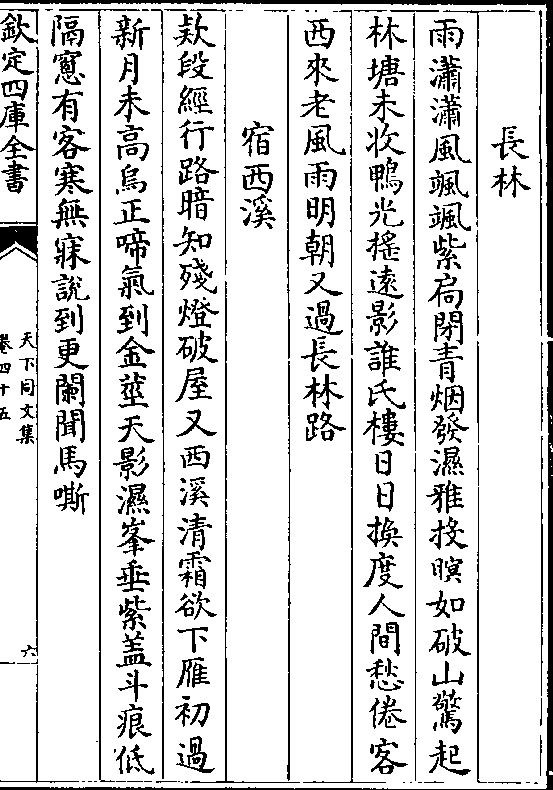 長林
雨瀟瀟風颯颯紫扃閉青烟發濕雅投暝如破山驚起
林塘未收鴨光揺遠影誰氏樓日日換度人間愁倦客
西來老風雨明朝又過長林路
宿西溪
欵段經行路暗知殘燈破屋又西溪清霜欲下雁初過
新月未高烏正啼氣到金莖天影濕峯垂紫盖斗痕低
隔窻有客寒無寐說到更闌聞馬嘶
欽定四庫全書
天下同文集
卷四十五
六